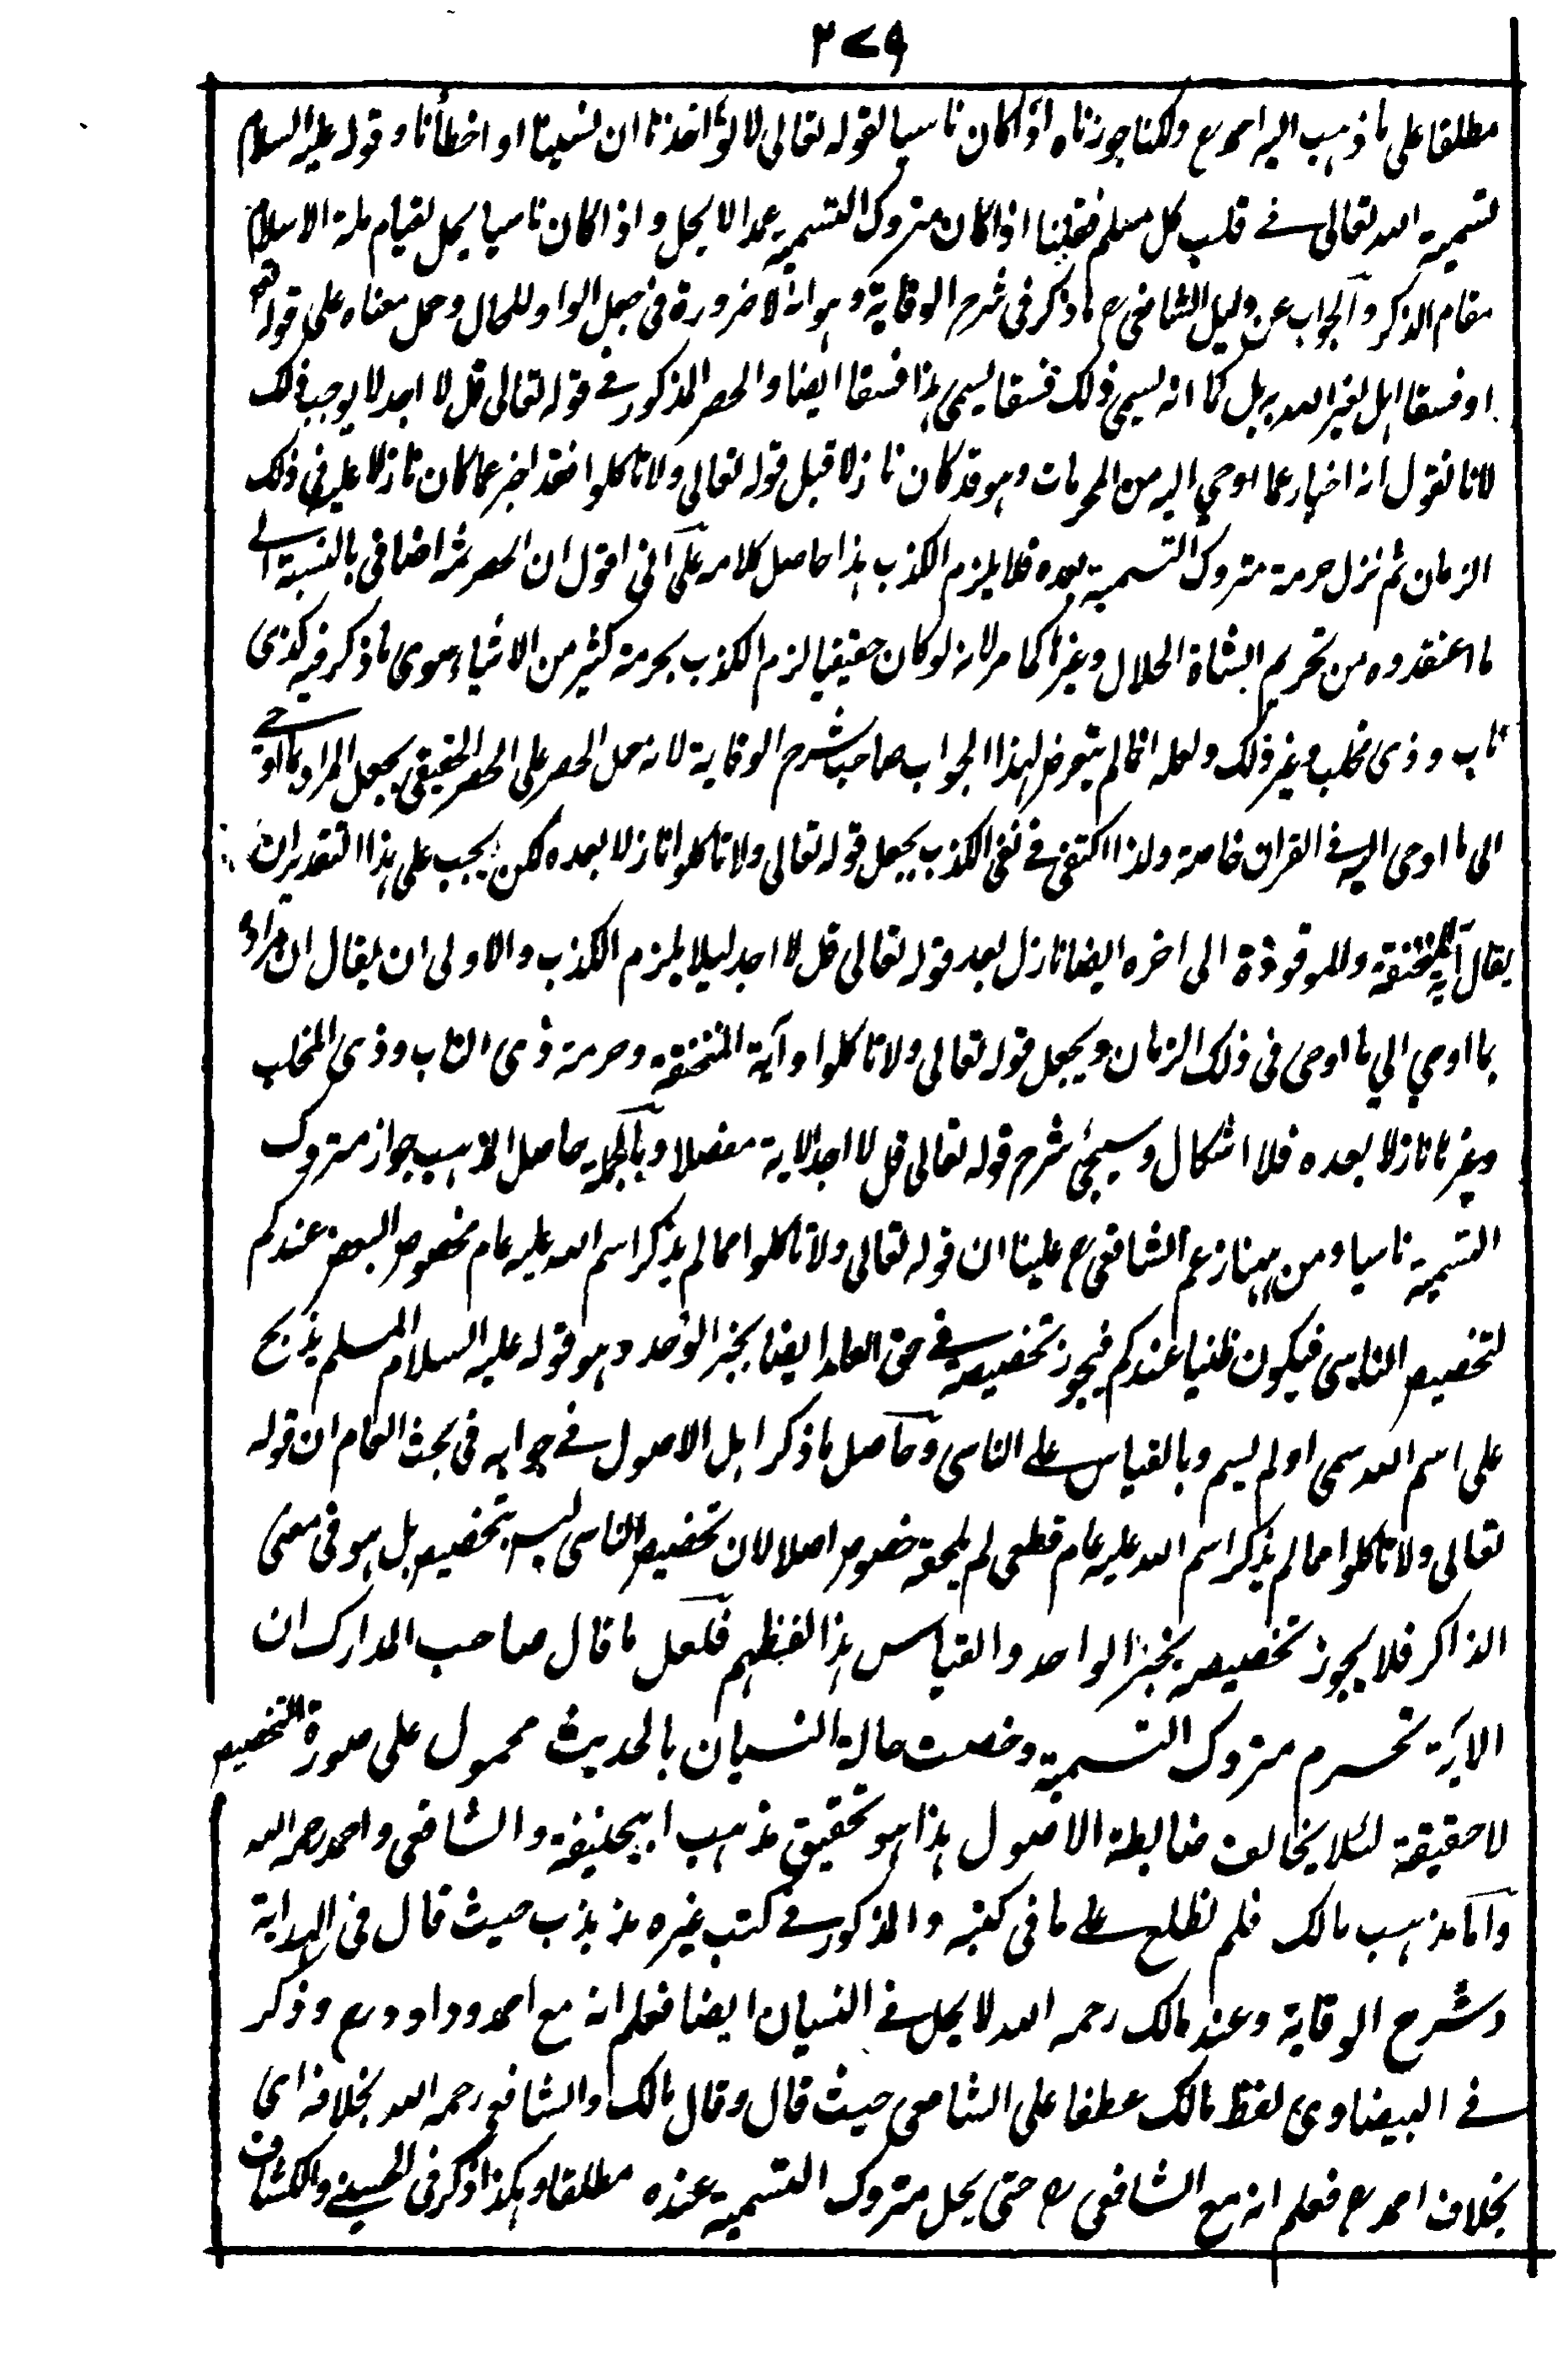 ٣٧٩
مطلقا على ما ذهب اليه احمد رح ولكنا جوزناه اذا كان ناسيا لقوله تعالى لا تؤاخذنا ان نسينا او اخطأنا وقوله عليه السلام
تسمية الله تعالى في قلب كل مسلم فقلنا اذا كان متروك التسمية عمدا لا يحل واذا كان ناسيا يحل لقيام ملة الاسلام
مقام الذكر والجواب عن دليل الشافعي رح ما ذكر في شرح الوقاية وهو انه لا ضرورة في جعل الواو للحال وحمل معناه على قوله
او فسقا اهل لغير الله به بل كما انه يسمى ذلك فسقا يسمى هذا فسقا ايضا والحصر المذكور في قوله تعالى قل لا اجد لا يوجب ذلك
لانا نقول انه اخبار عما اوحي اليه من المحرمات وهو قد كان نازلا قبل قوله تعالى ولا تاكلوا فقد اخبر عما كان نازلا عليه في ذلك
الزمان ثم نزل حرمة متروك التسمية بعده فلا يلزم الكذب هذا حاصل كلامه على اني اقول ان الحصر ثمه اضافي بالنسبة الى
ما اعتقدوه من تحريم الشاة الحلال وغيرها كما مر لانه لو كان حقيقيا لزم الكذب بحرمة كثير من الاشياء سوى ما ذكر فيه كذى
ناب وذى مخلب وغير ذلك ولعله انما لم يتعرض لهذا الجواب صاحب شرح الوقاية لانه حمل الحصر على الحصر الحقيقي بجعل المراد بما اوحي
الى ما اوحى اليه في القران خاصة ولذا اكتفى في نفي الكذب بجعل قوله تعالى ولا تاكلوا نازلا بعده لكن يجب على هذا التقدير ان
يقال آية المنخنقة والموقوذة الى اخره ايضا نازل بعد قوله تعالى قل لا اجد ليلا يلزم الكذب والاولى ان يقال ان مراده
بما اوحي الي ما اوحى في ذلك الزمان ويجعل قوله تعالى ولا تاكلوا وآية المنخنقة وحرمة ذى الناب وذى المخلب
وغيرها نازلا بعده فلا اشكال وسيجئ شرح قوله تعالى قل لا اجد الاية مفصلا وبالجملة حاصل المذهب جواز متروك
التسمية ناسيا ومن ههنا زعم الشافعي رح علينا ان قوله تعالى ولا تاكلوا مما لم يذكر اسم الله عليه عام مخصوص البعض عندكم
لتخصيص الناسى فيكون ظنيا عندكم فيجوز تخصيصه في حق العامد ايضا بخبر الواحد وهو قوله عليه السلام المسلم يذبح
على اسم الله سمى او لم يسم وبالقياس على الناسى وحاصل ما ذكر اهل الاصول في جوابه في بحث العام ان قوله
تعالى ولا تاكلوا مما لم يذكر اسم الله عليه عام قطعى لم يلحقه خصوص اصلا لان تخصيص الناسى ليس بتخصيص بل هو في معنى
الذاكر فلا يجوز تخصيصه بخبر الواحد والقياس هذا لفظهم فلعل ما قال صاحب المدارك ان
الآية تحرم متروك التسمية وخصت حالة النسيان بالحديث محمول على صورة التخصيص
لا حقيقة لئلا يخالف ضابطة الاصول هذا هو تحقيق مذهب ابيحنيفة والشافعى واحمد رحمه الله
واما مذهب مالك فلم نطلع على ما في كتبه والمذكور في كتب غيره مذبذب حيث قال في الهداية
وشرح الوقاية وعند مالك رحمه الله لا يحل في النسيان ايضا فعلم انه مع احمد وداود رح وذكر
في البيضاوى لفظ مالك عطفا على الشافعى حيث قال وقال مالك والشافعي رحمه الله بخلافه اى
بخلاف احمد رح فعلم انه مع الشافعى رح حتى يحل متروك التسمية عنده مطلقا وهكذا ذكر في الحسينى والكشاف